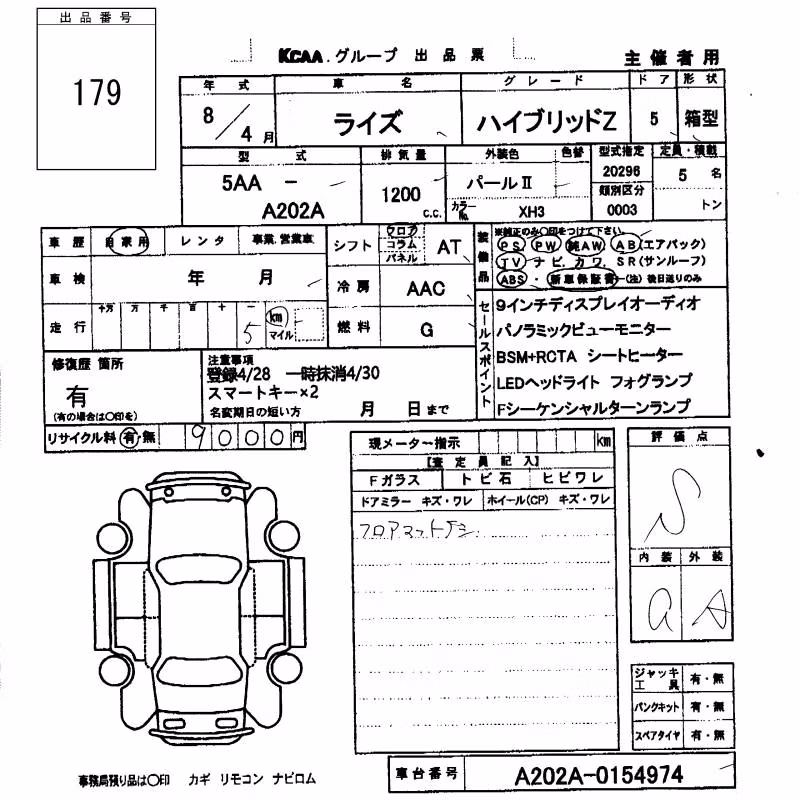 出品番号
179
KCAA.グループ 出品票
主催者用
年式 車名 グレード ドア 形状
8/4月 ライズ ハイブリッドZ 5 箱型
型式 排気量 外装色 色替 型式指定 定員・積載
5AA - A202A 1200 C.C. パールⅡ 20296 5名
カラーNo. XH3 類別区分 0003 トン
車歴 自家用 レンタ 事業.営業車
車検 年 月
走行 十万 万 千 百 十 一 5 km マイル
シフト フロア コラム パネル AT
冷房 AAC
燃料 G
装備品
※純正のみ〇印をつけて下さい。
PS PW 純AW AB(エアバック)
TV ナビ.カワ.SR(サンルーフ)
ABS・新車保証書-(注)後日送りのみ
セールスポイント
9インチディスプレイオーディオ
パノラミックビューモニター
BSM+RCTA シートヒーター
LEDヘッドライト フォグランプ
Fシーケンシャルターンランプ
修復歴 箇所
有
(有の場合は〇印を)
注意事項
登録4/28 一時抹消4/30
スマートキー×2
名変期日の短い方 月 日まで
リサイクル料 有・無 9000円
現メーター指示 km
【査定員記入】
Fガラス トビ石 ヒビワレ
ドアミラー キズ・ワレ ホイール(CP) キズ・ワレ
フロアマットナシ.
評価点
S
内装 外装
a A
ジャッキ工具 有・無
パンクキット 有・無
スペアタイヤ 有・無
事務局預り品は〇印 カギ リモコン ナビロム
車台番号 A202A-0154974